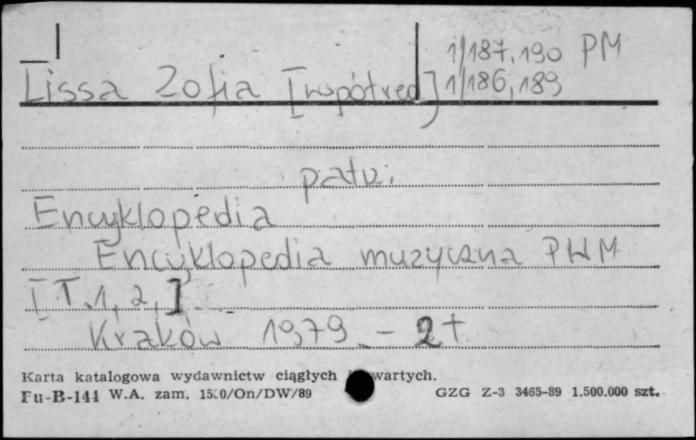 1/187,190 PM
Lissa Zofia [współred] 1/186,189
patv.
Encyklopedia
Encyklopedia muzyczna PWM
[T.1,2,]
Kraków 1979 - 2t
Karta katalogowa wydawnictw ciągłych wartych.
Fu-B-141 W.A. zam. /On/DW/89 GZG Z-3 3465-89 1.500.000 szt.